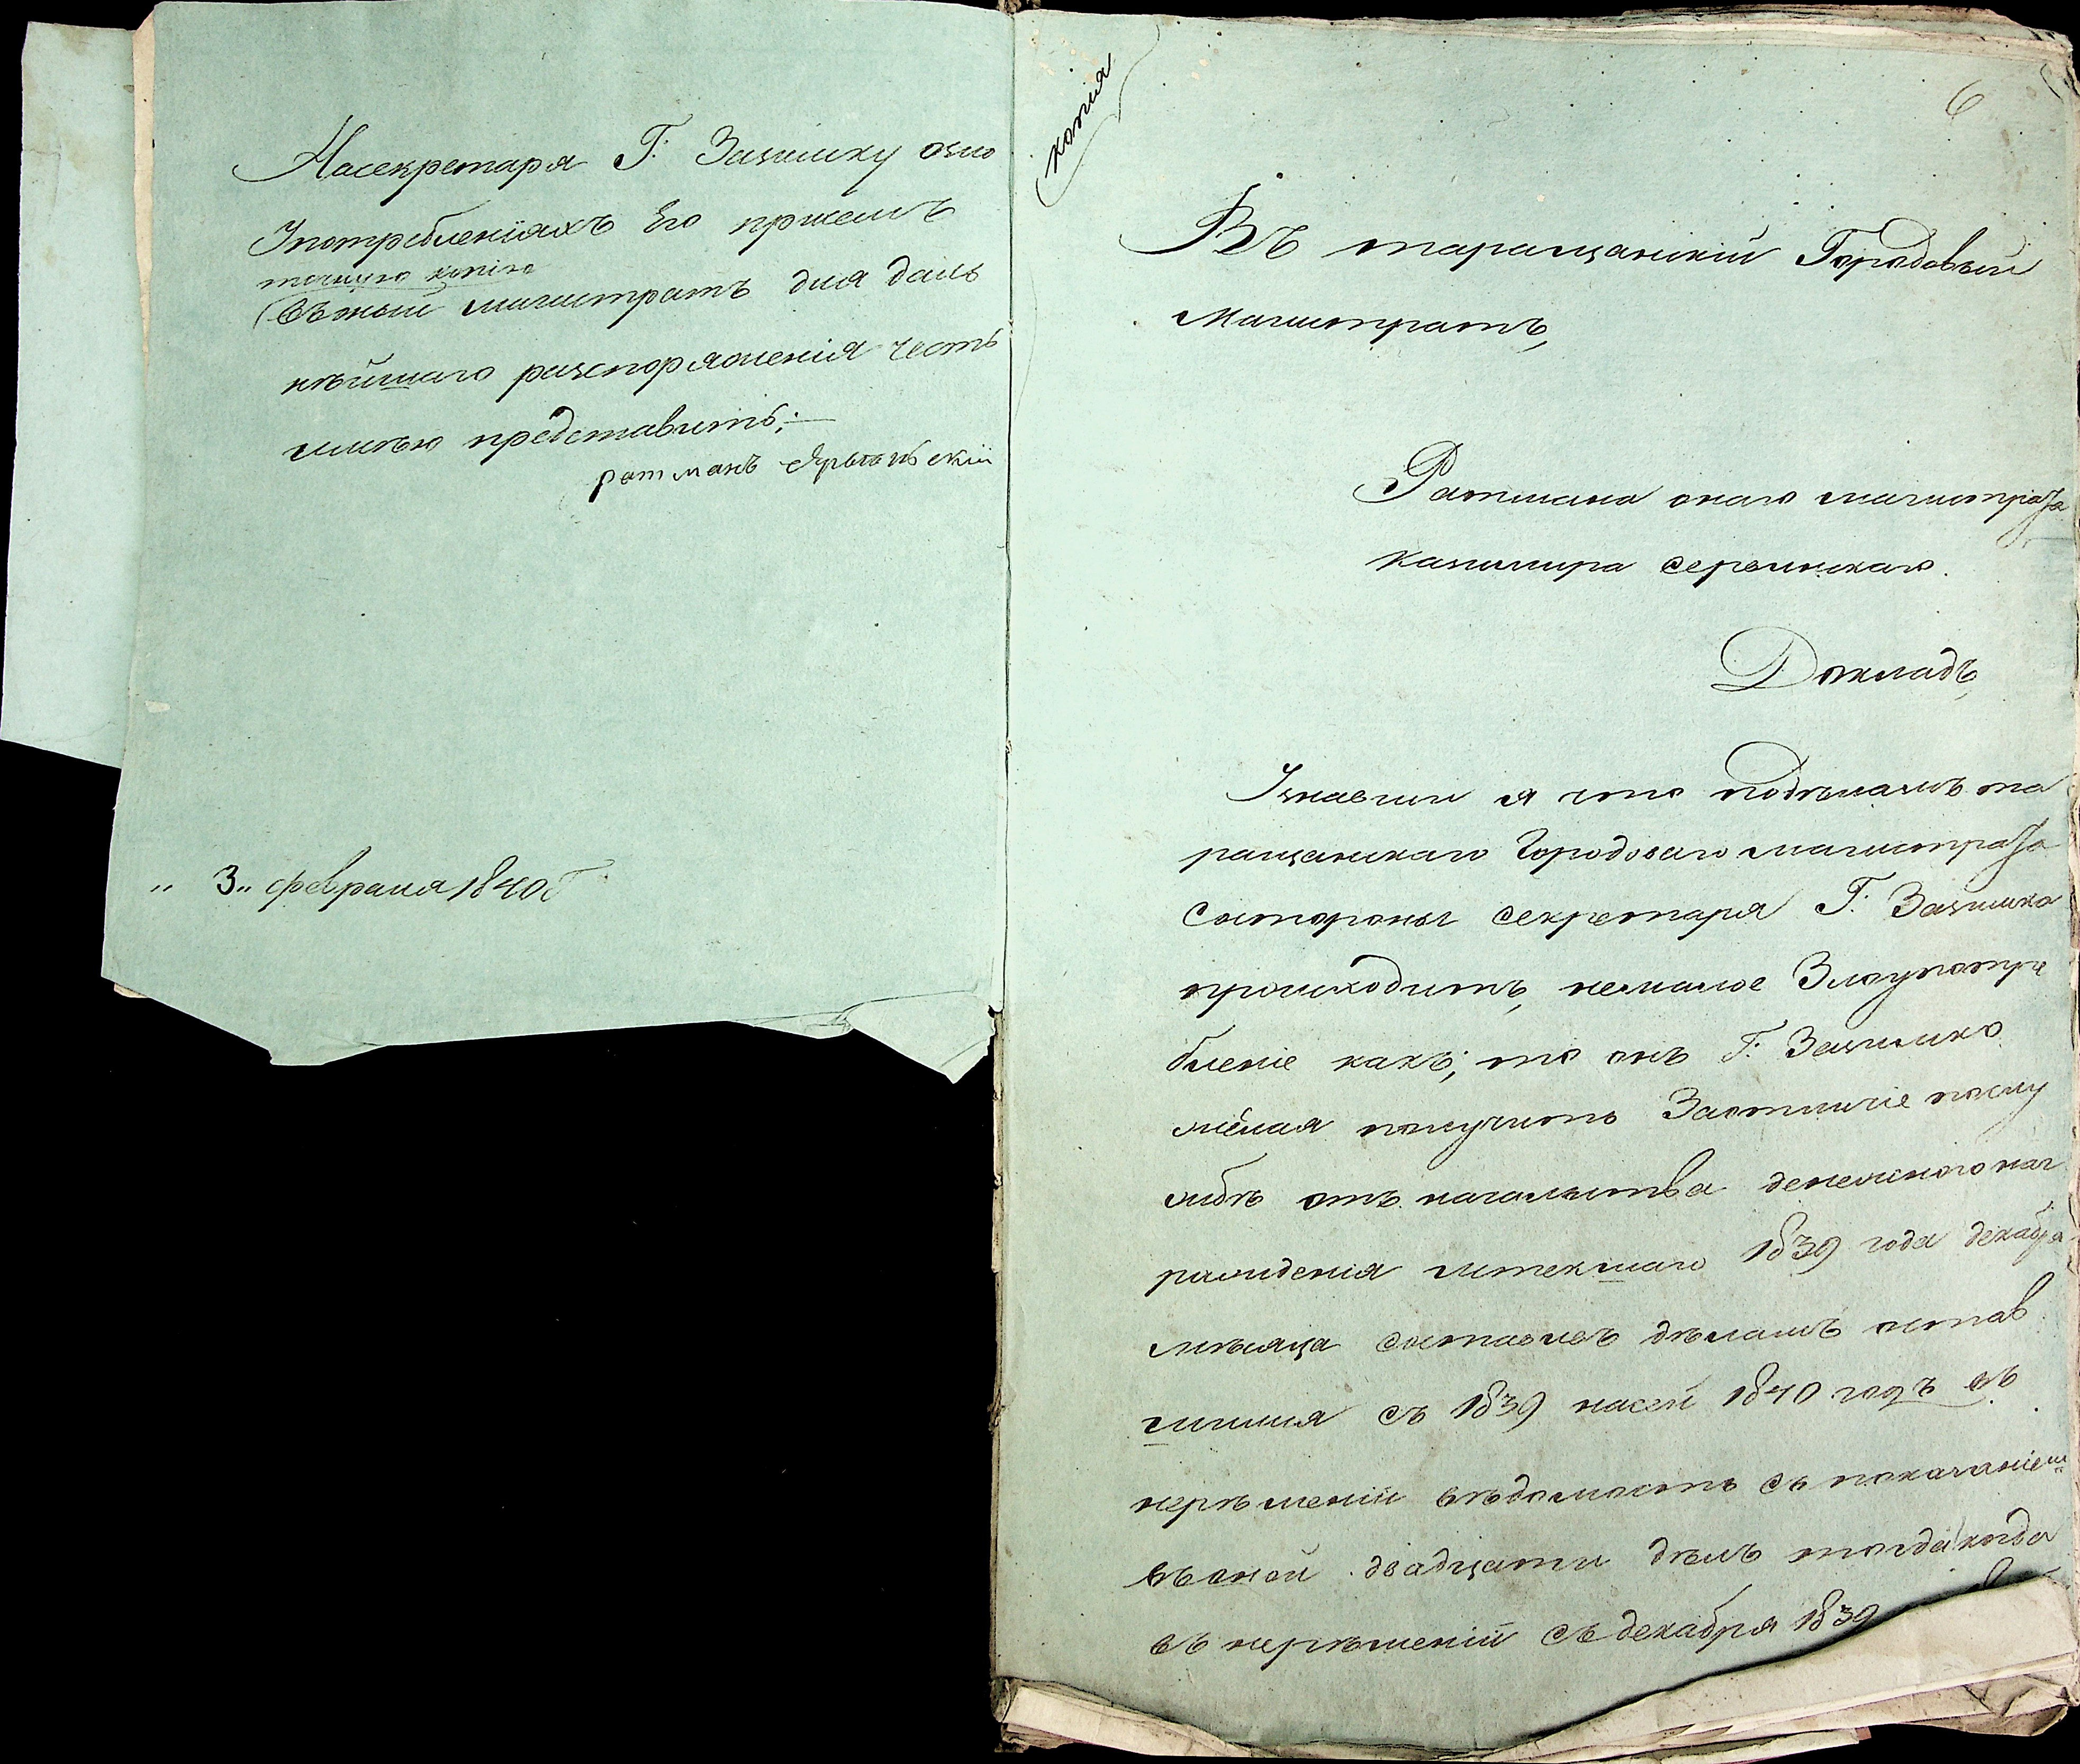 Насекретаря Г: Зазимку озло
Употребленіяхъ Его при семъ
точную копію
въ оной магистратъ для даль
нѣйшаго разпоряженія честь
имѣю представить;—
ратманъ
„ 3 „ февраля 1840 г
копія
6
Въ таращанскій Городовый
Магистратъ,
Ратмана онаго магистрата
Казимира
Докладъ,
Узнавши я что подѣламъ та
ращанскаго Городоваго магистрата
состороны секретаря Г: Зазимка
происходитъ, немалое Злоупотре
бленіе какъ; то онъ Г: Зазимко
желая получить Заотличіе послу
жбѣ отъ начальства денежного наг
ражденія истекшаго 1839 года декабря
мѣсяца составивъ дѣламъ остав
шимся съ 1839 насей 1840 годъ въ
нерѣшеніи вѣдомость съ показаніем
въ оной двадцати дѣлъ тогда когда
въ нерѣшеній съ декабря 1839